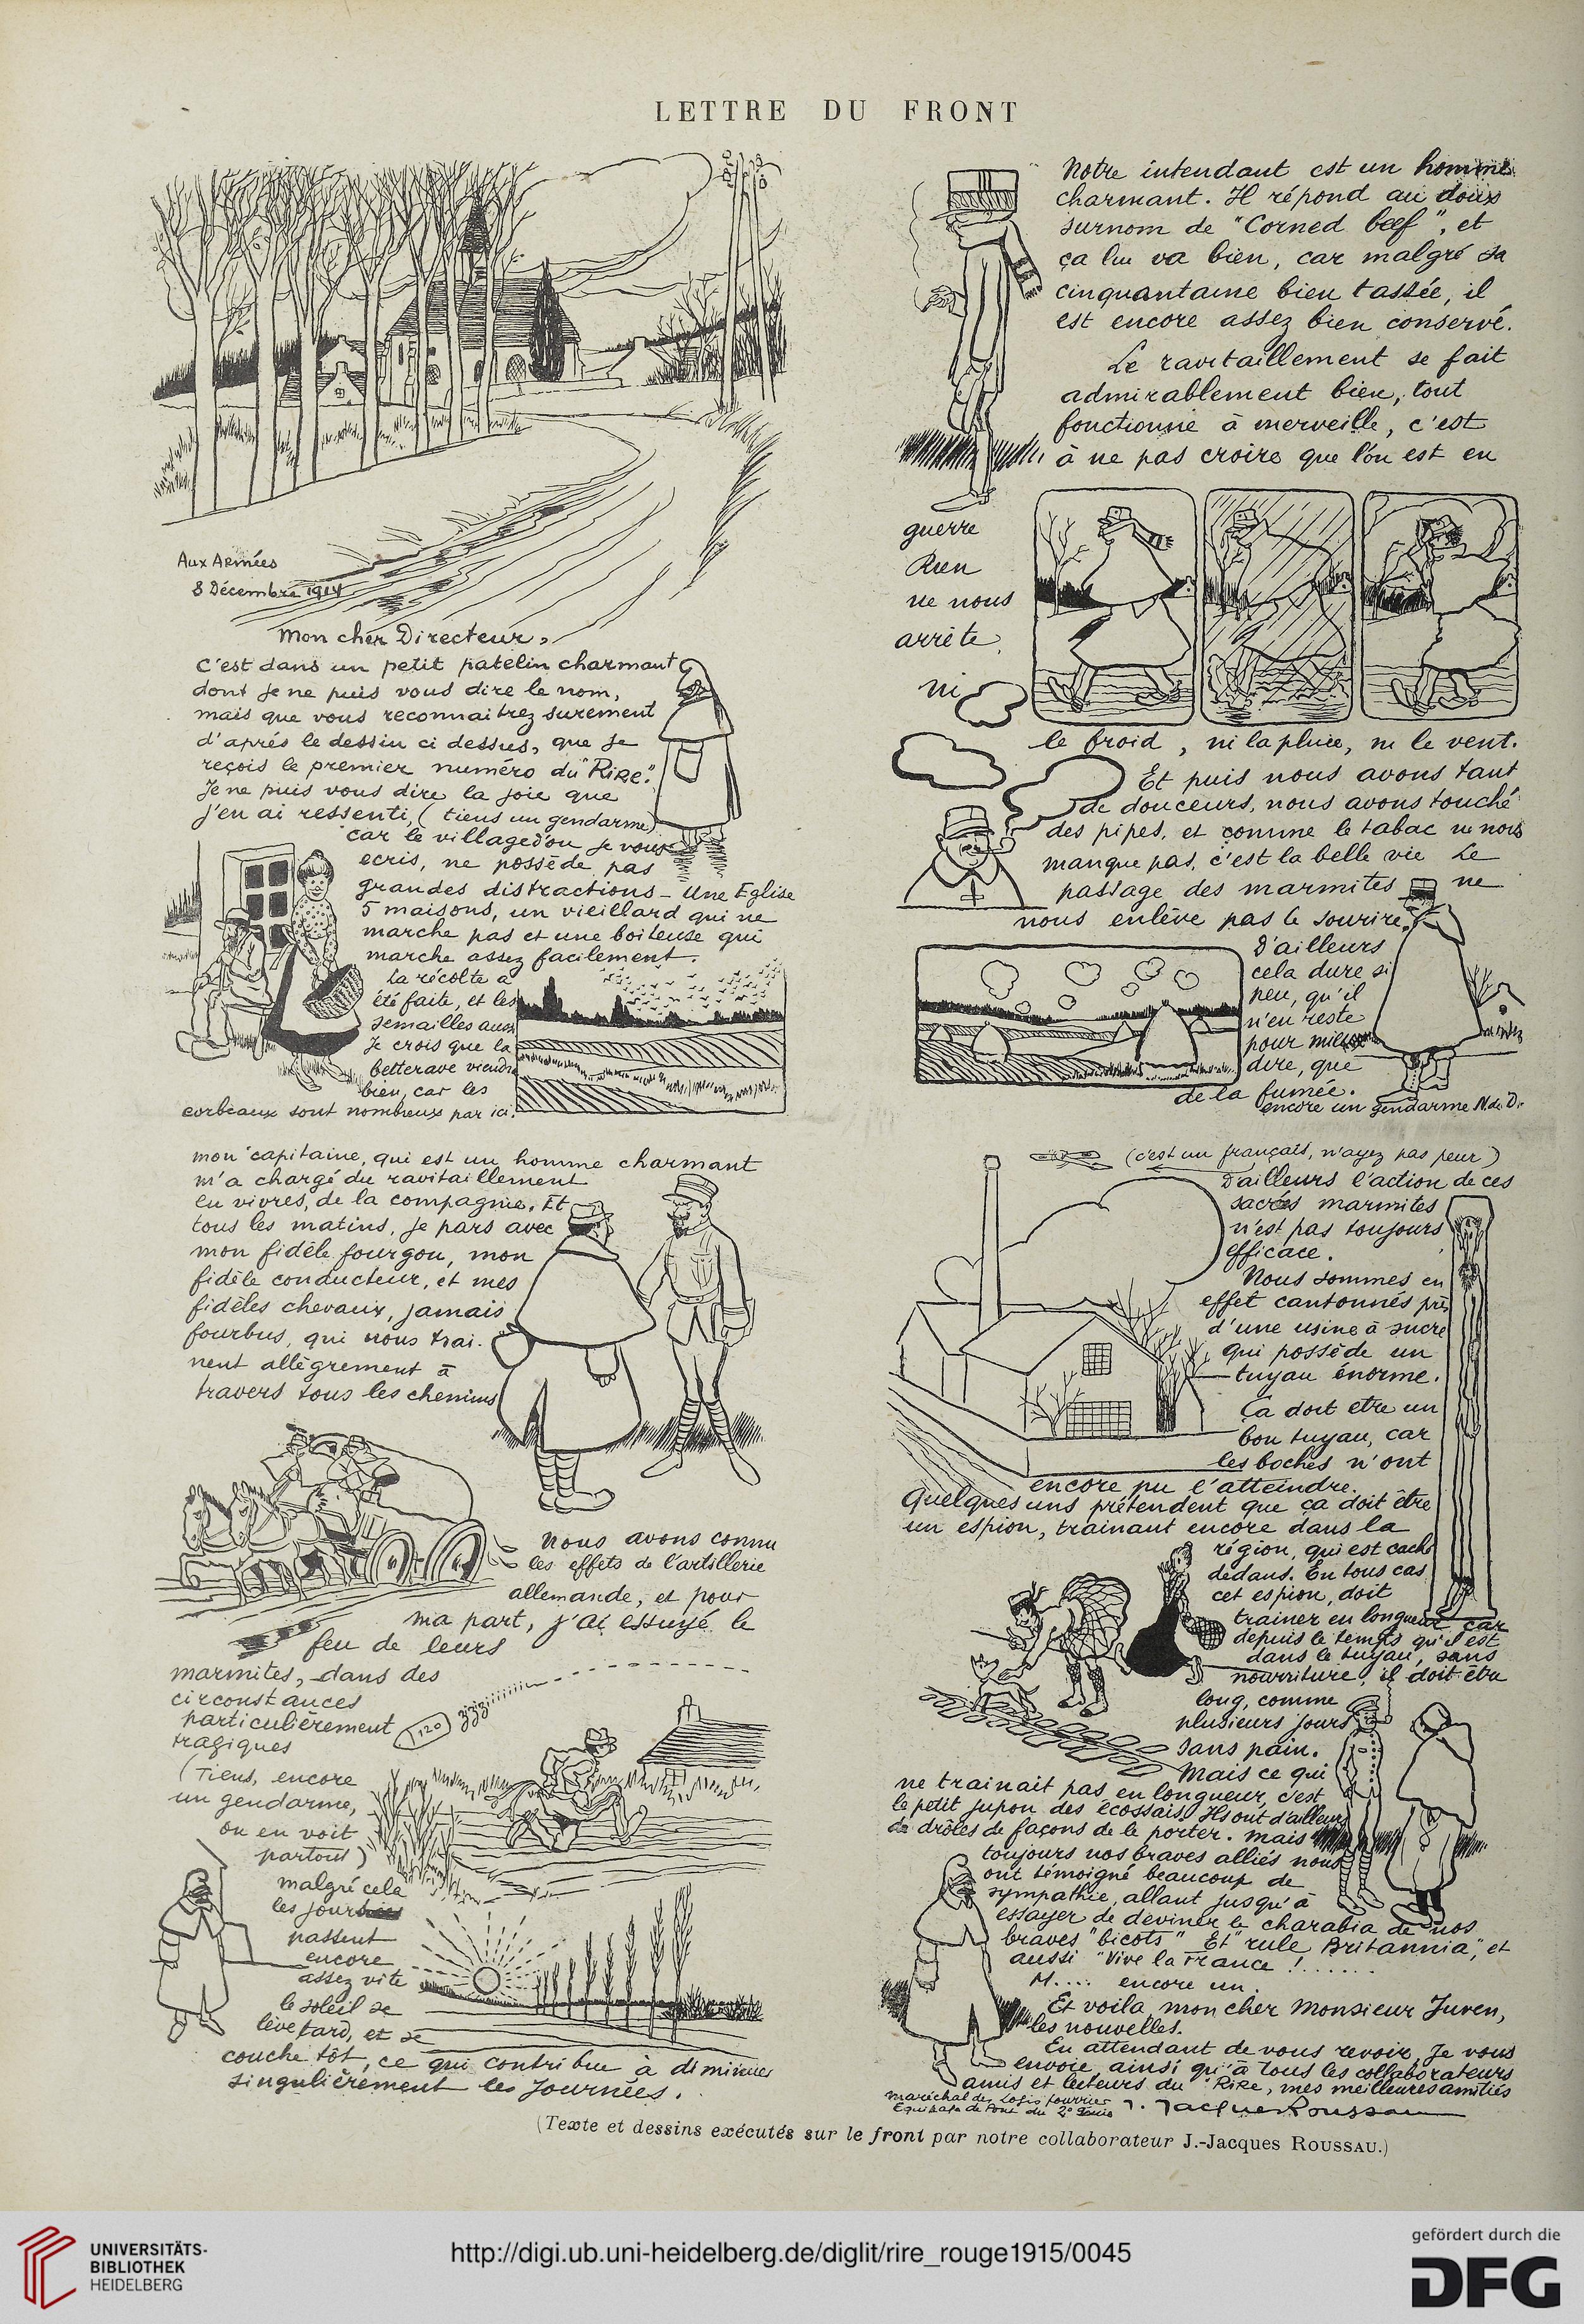 LETTRE DU FRONT
Aux Armées
8 Décembre 1914
Mon cher Directeur,
C'est dans un petit patelin charmant
dont je ne puis vous dire le nom,
mais que vous reconnaitrez surement
d'aprés le dessin ci dessus, que je
reçois le premier numéro du "RIRE".
Je ne puis vous dire la joie que
j'en ai ressenti, (tiens un gendarme)
car le village d'ou je vous
ecris, ne posséde pas
grandes distractions - Une Eglise
5 maisons, un vieillard qui ne
marche pas et une boiteuse qui
marche assez facilement.
La récolte a
été faite, et les
semailles aussi
Je crois que la
betterave viendra
bien, car les
corbeaux sont nombreux par ici.
mon capitaine, qui est un homme charmant
m'a chargé du ravitaillement
en vivres, de la compagnie, Et
tous les matins, je pars avec
mon fidéle fourgon, mon
fidéle conducteur, et mes
fidéles chevaux, jamais
fourbus, qui nous trai-
nent allégrement à
travers tous les chemins
Nous avons connu
les effets de l'artillerie
allemande, et pour
ma part, j'ai essuyé le
feu de leurs
marmites, dans des
circonstances
particuliérement
tragiques
120
zzziiiiiiii
(Tiens, encore
un gendarme,
on en voit
partout)
malgré cela
les jours
passent
encore
assez vite
le soleil se
léve tard, et se
couche tôt, ce qui contribue à diminuer
singuliérement les journées.
Notre intendant est un homme
charmant. Il répond au doux
surnom de "Corned beef", et
ça lui va bien, car malgré sa
cinquantaine bien tassée, il
est encore assez bien conservé.
Le ravitaillement se fait
admirablement bien, tout
fonctionne à merveille, c'est
à ne pas croire que l'on est en
guerre
Rien
ne nous
arrête,
ni
le froid, ni la pluie, ni le vent.
Et puis nous avons tant
de douceurs, nous avons touché
des pipes, et comme le tabac ne nous
manque pas, c'est la belle vie Le
passage des marmites ne
nous enlève pas le sourire,
D'ailleurs
cela dure si
peu, qu'il
n'en reste
pour mieux
dire, que
de la fumée.
encore un gendarme N.d.D.
(c'est un français, n'ayez pas peur)
D'ailleurs l'action de ces
sacrées marmites
n'est pas toujours
efficace.
Nous sommes en
effet cantonnés près
d'une usine à sucre
qui posséde un
tuyau énorme.
Ça doit etre un
bon tuyau, car
les boches n'ont
encore pu l'atteindre.
Quelques uns prétendent que ça doit être
un espion, trainant encore dans la
région, qui est caché
dedans. En tous cas
cet espion, doit
trainer en longueur car
depuis le temps qu'il est
dans le tuyau, sans
nourriture, il doit être
long, comme
plusieurs jours
sans pain.
Mais ce qui
ne trainait pas en longueur, c'est
le petit jupon des écossais. Ils ont d'ailleurs
de drôles de façons de le porter. Mais
toujours nos braves alliés nous
ont témoigné beaucoup de
sympathie, allant jusqu'à
essayer de deviner le charabia de nos
braves "bicots" Et "rule Britannia", et
aussi "Vive la France !......
M.... encore un
Et voila, mon cher Monsieur Juven,
les nouvelles.
En attendant de vous revoir, Je vous
envoie, ainsi qu'à tous les collaborateurs
amis et lecteurs du "RIRE, mes meilleures amitiés
J. Jacques Roussau
maréchal des Logis fourrier
Equipage de Pont du 2e Génie
(Texte et dessins exécutés sur le front par notre collaborateur J.-Jacques ROUSSAU.)
UNIVERSITÄTS-
BIBLIOTHEK
HEIDELBERG
http://digi.ub.uni-heidelberg.de/diglit/rire_rouge1915/0045
gefördert durch die
DFG